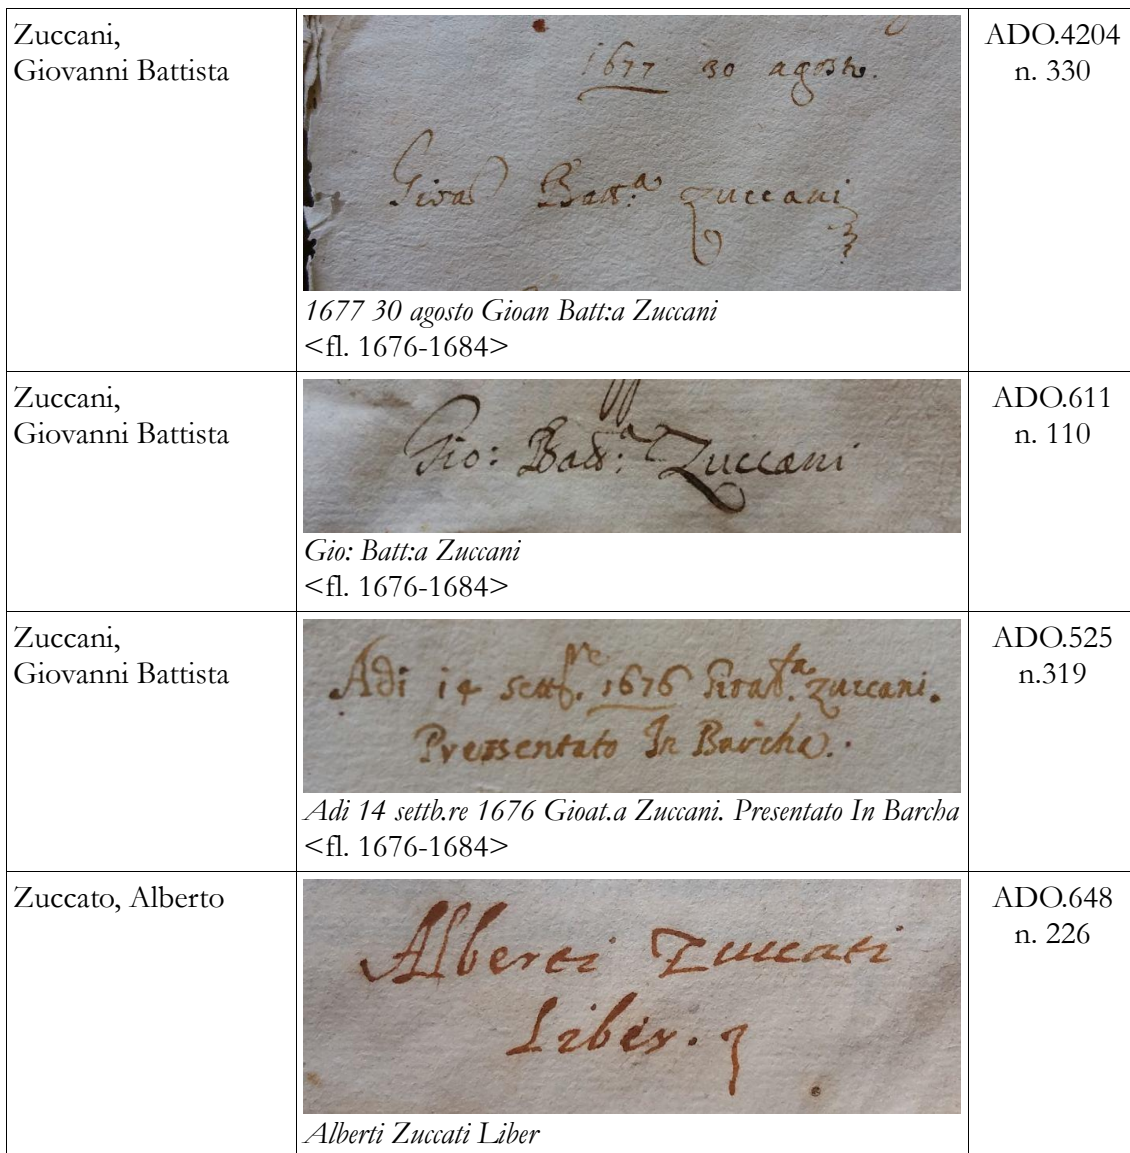 Zuccani,
Giovanni Battista
1677 30 agosto.
Gioan Batt:a Zuccani
1677 30 agosto Gioan Batt:a Zuccani
<fl. 1676-1684>
ADO.4204
n. 330
Zuccani,
Giovanni Battista
Gio: Batt:a Zuccani
Gio: Batt:a Zuccani
<fl. 1676-1684>
ADO.611
n. 110
Zuccani,
Giovanni Battista
Adi 14 settb.re 1676 Gioat.ta Zuccani.
Pressentato In Barcha.
Adi 14 settb.re 1676 Gioat.a Zuccani. Presentato In Barcha
<fl. 1676-1684>
ADO.525
n.319
Zuccato, Alberto
Alberti Zuccati
Liber.
Alberti Zuccati Liber
ADO.648
n. 226